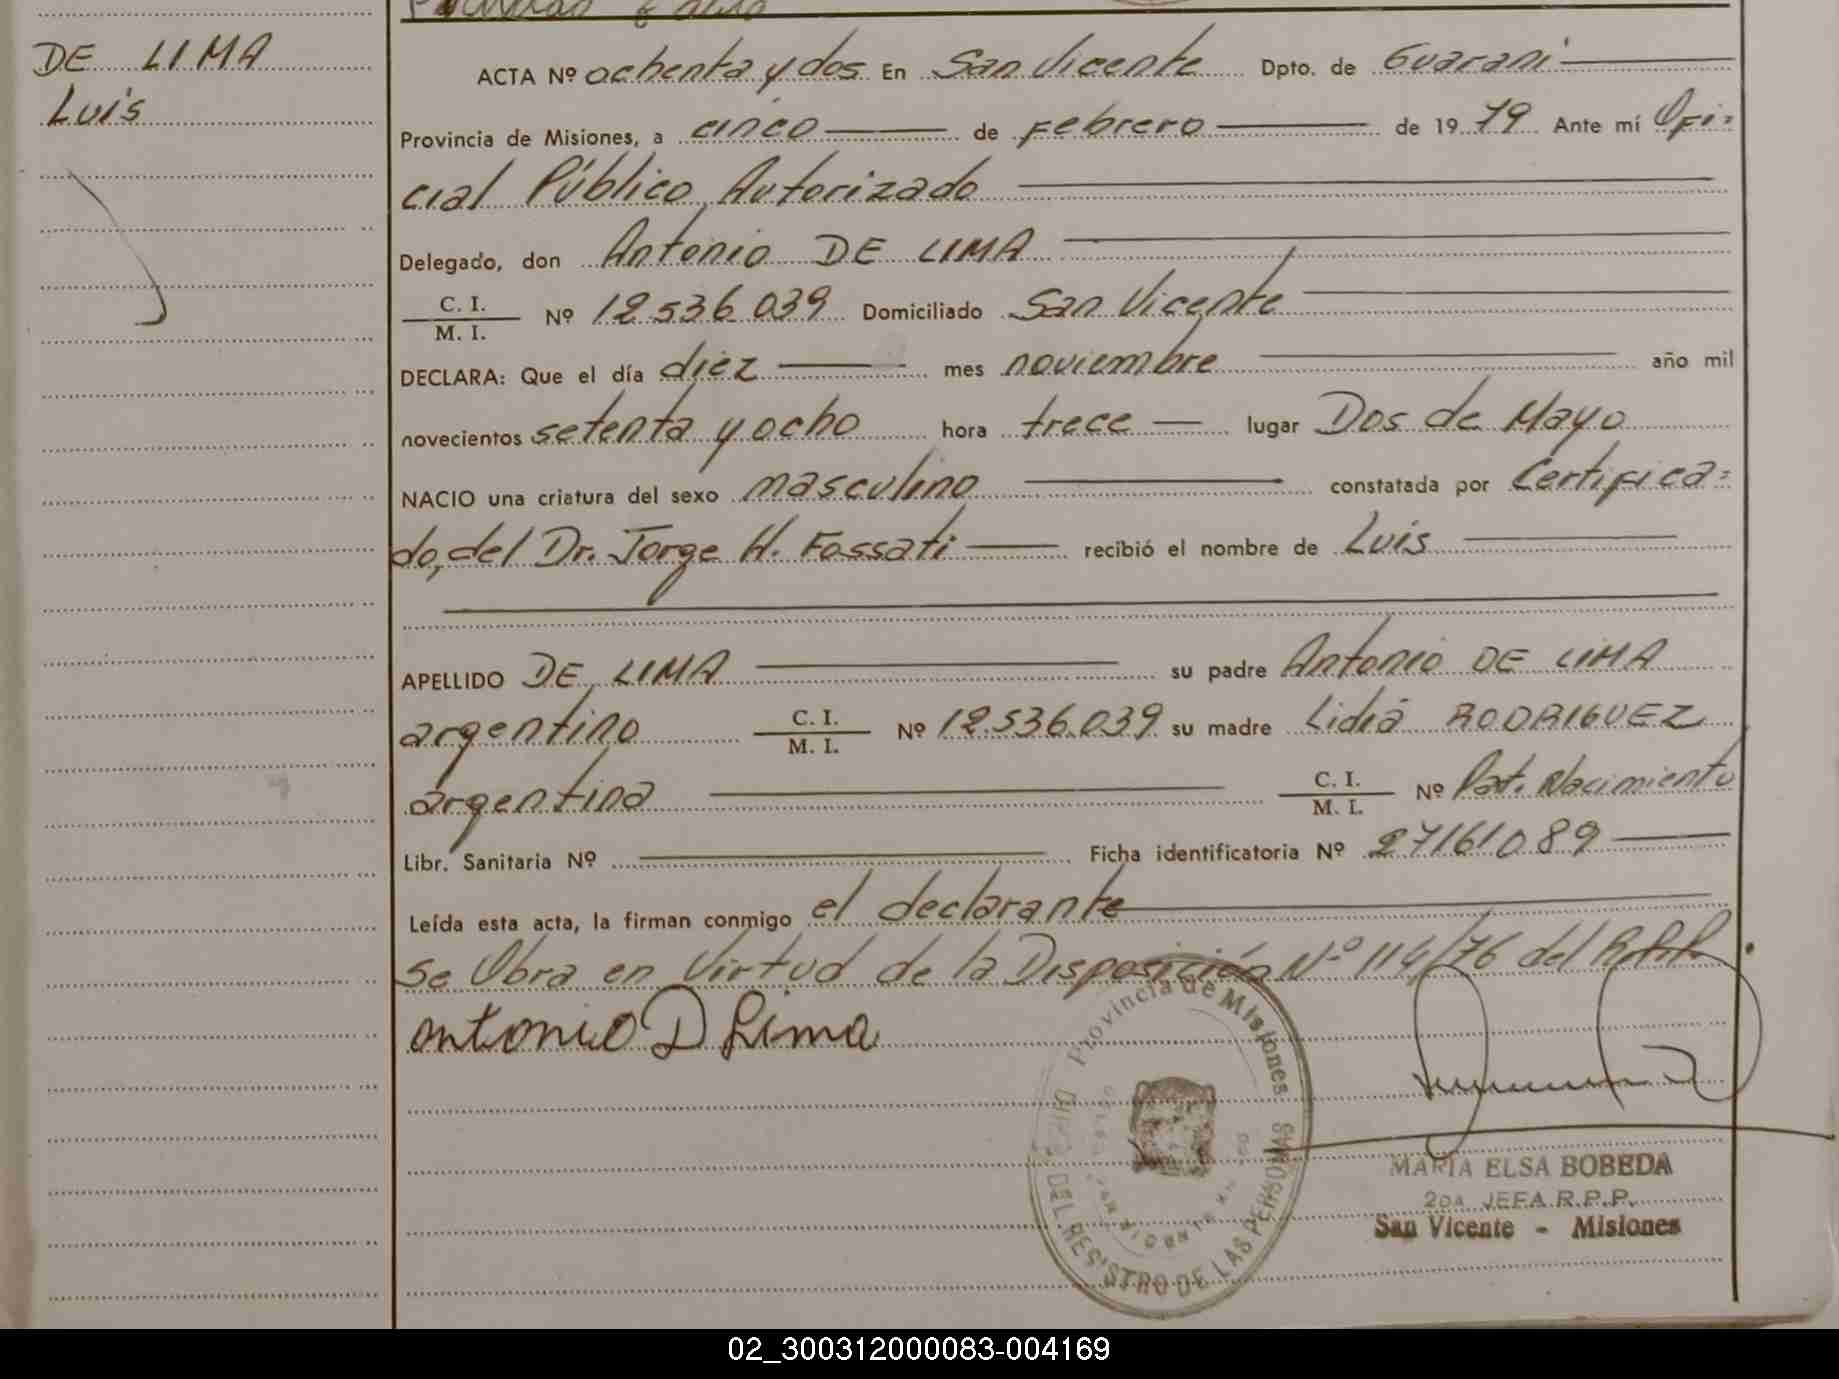 DE LIMA
Luis
ACTA Nº ochenta y dos En San Vicente Dpto. de Guaraní
Provincia de Misiones, a cinco de Febrero de 1979 Ante mí Ofi=
cial Público Autorizado
Delegado, don Antonio DE LIMA
C. I.
M. I.
Nº 12.536.039 Domiciliado San Vicente
DECLARA: Que el día diez mes noviembre año mil
novecientos setenta y ocho hora trece lugar Dos de Mayo
NACIO una criatura del sexo masculino constatada por Certifica=
do, del Dr. Jorge H. Fossati recibió el nombre de Luis
APELLIDO DE LIMA su padre Antonio DE LIMA
argentino C. I. M. I. Nº 12.536.039 su madre Lidia RODRIGUEZ
argentina C. I. M. I. Nº Pat. Nacimiento
Libr. Sanitaria Nº Ficha identificatoria Nº 27161089
Leída esta acta, la firman conmigo el declarante
Se Obra en Virtud de la Disposición Nº 114/76 del R.P.P.
Antonio D Lima
Provincia de Misiones
DEL REGISTRO DE LAS PERSONAS
MARIA ELSA BOBEDA
2da JEFA R.P.P.
San Vicente - Misiones
02_300312000083-004169